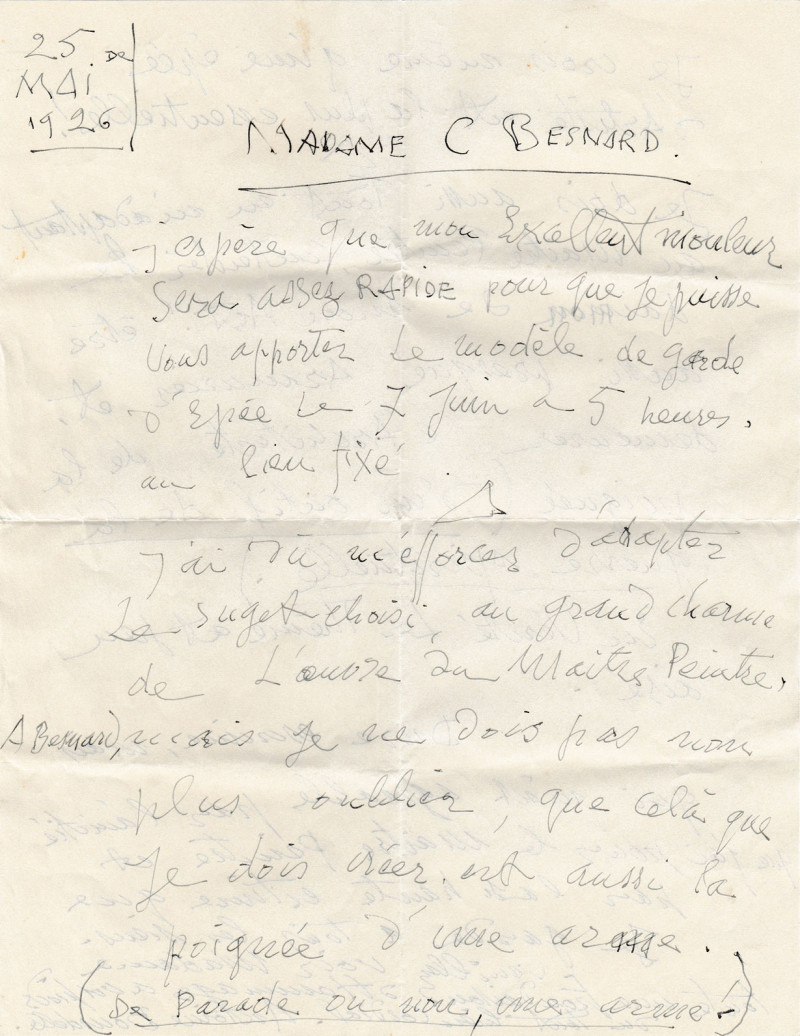 25 DE
MAI
1926
MADAME C BESNARD.
j'espère que mon Excellent mouleur
Sera assez RAPIDE pour que je puisse
Vous apporter Le modèle de garde
D'Epée Le 7 Juin a 5 heures.
au lieu fixé
J'ai Dû m'efforcer D'adapter
Le sujet choisi, au grand charme
de L'œuvre Du Maitre Peintre,
A Besnard, mais Je ne Dois pas non
plus oublier, que celà que
Je dois créer est aussi la
poignée d'une arme.
(De Parade ou non, une arme!)